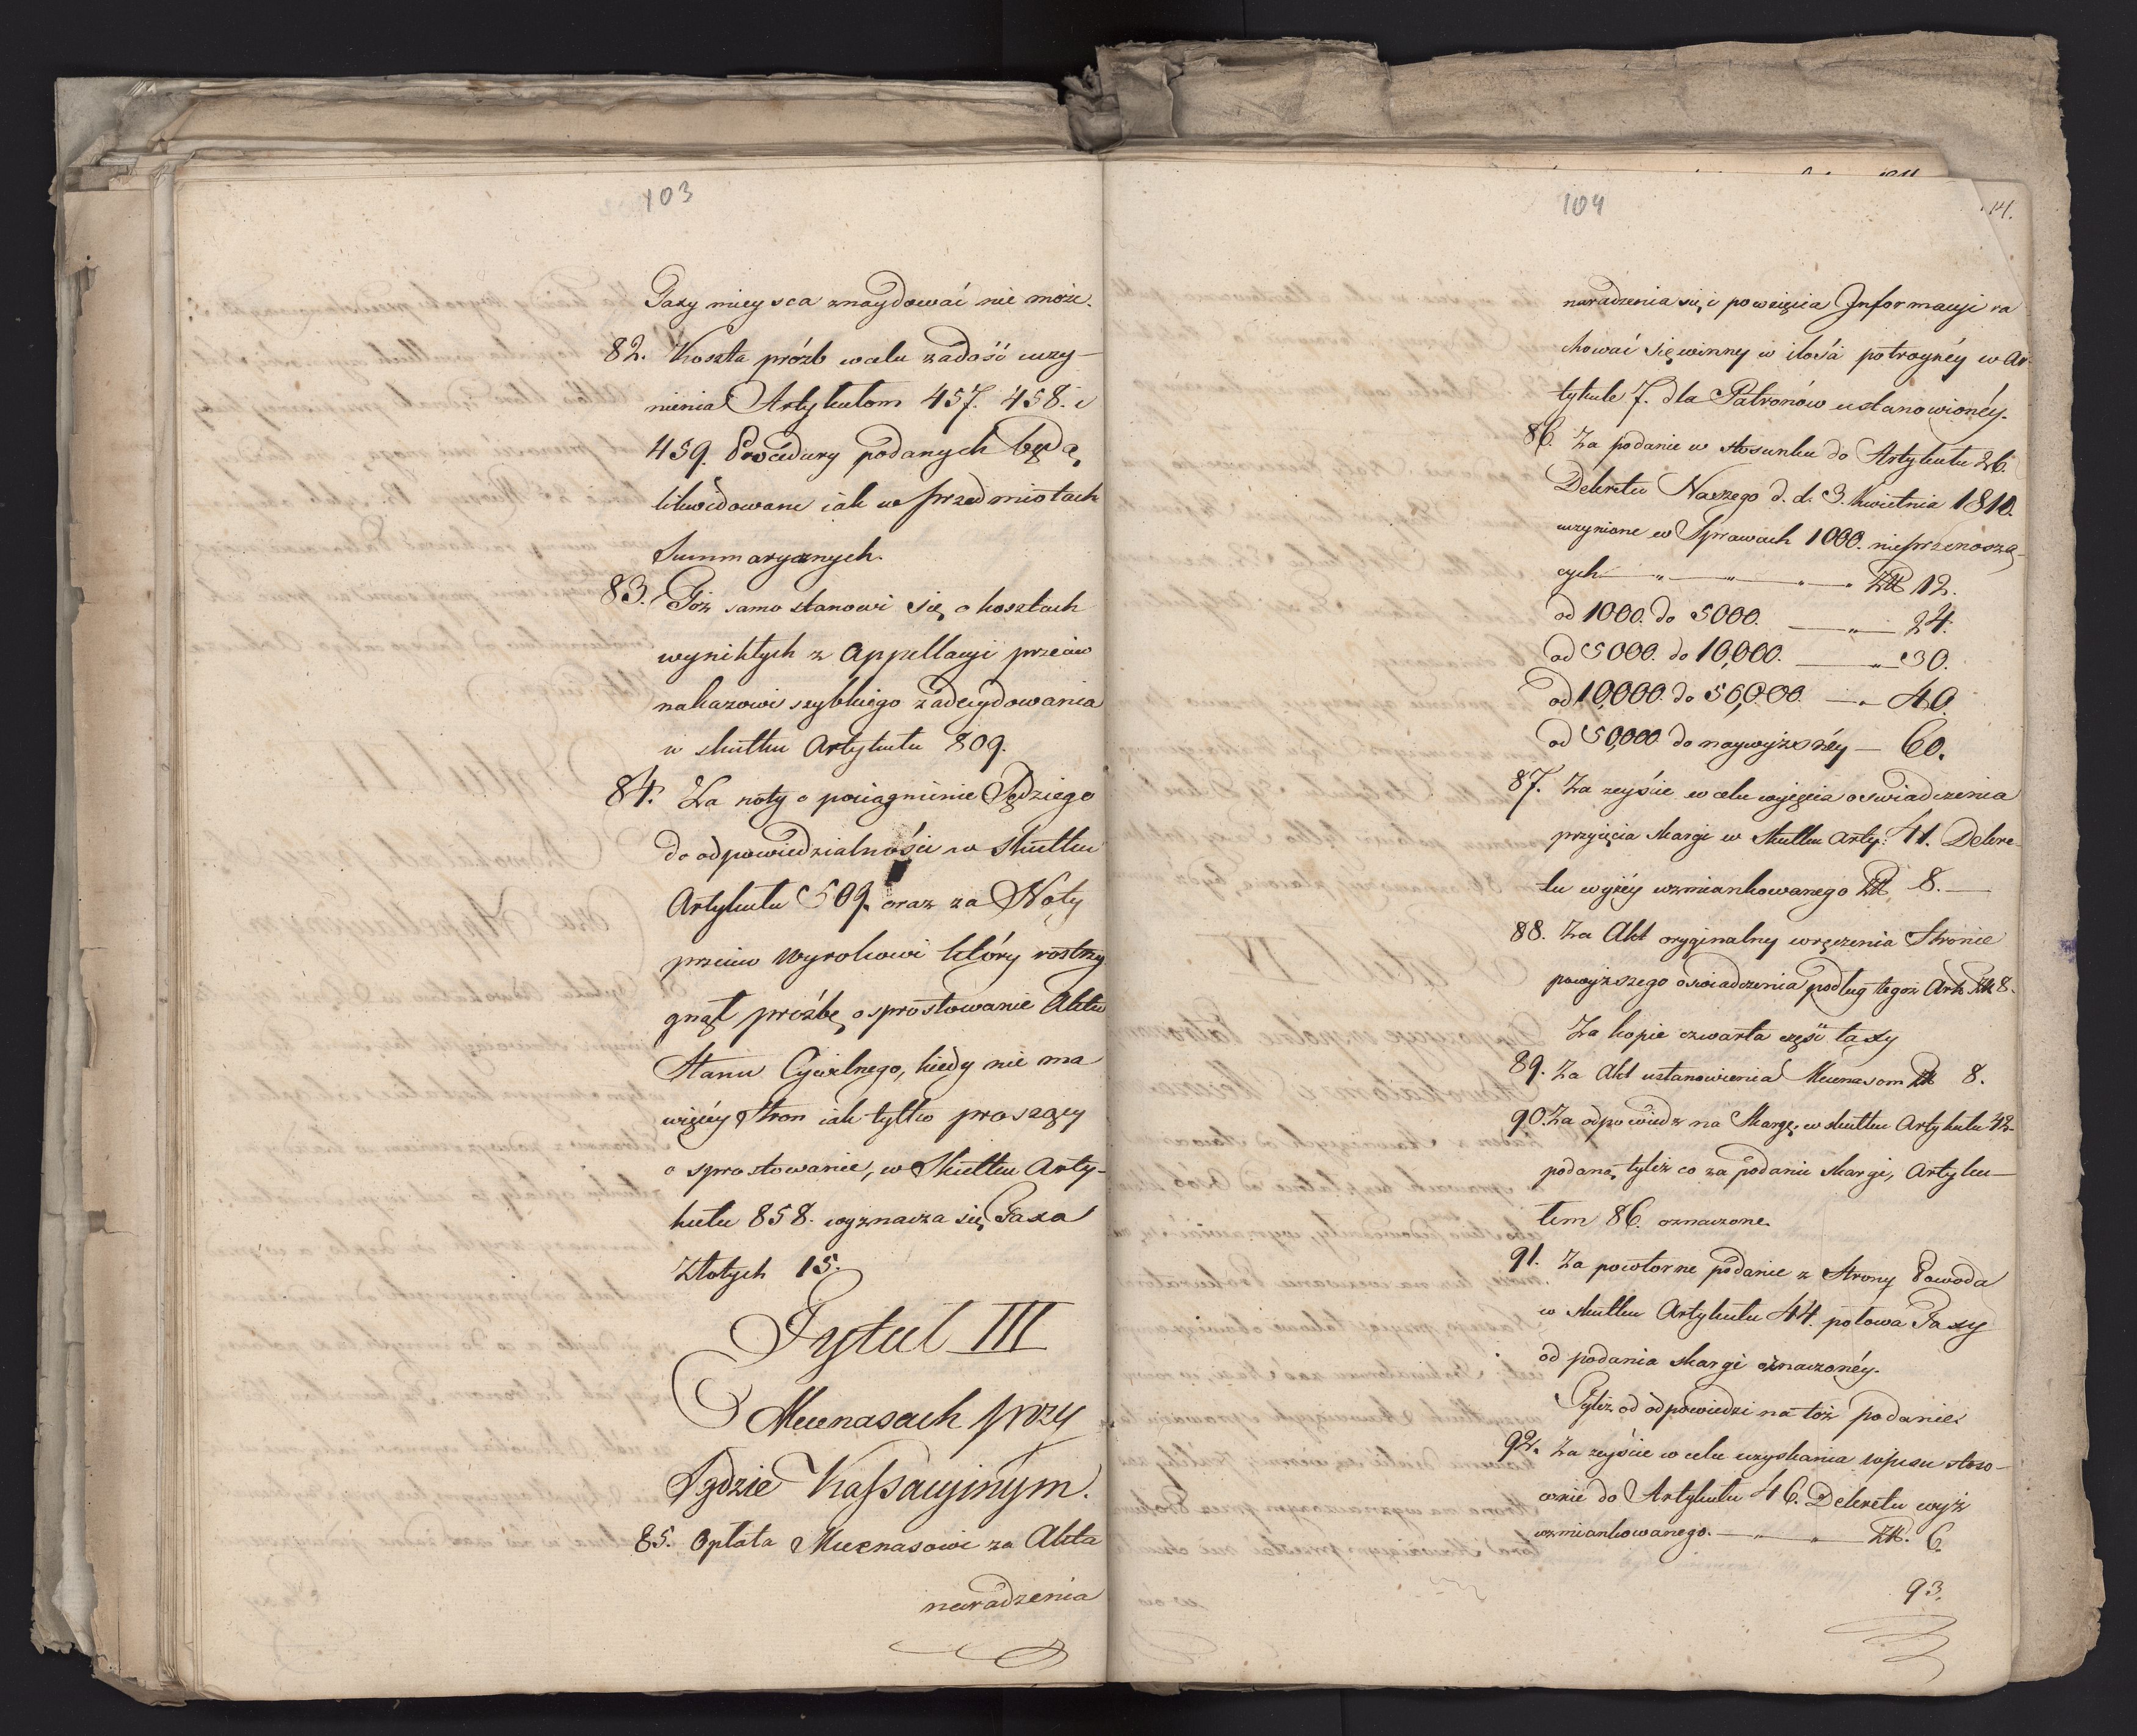 103
Taxy mieysca znaydować nie może.
82. Koszta próżb w celu zadość uczy-
nienia Artykułom 457. 458. i
459. Procedury podanych będą
likwidowane iak w przedmiotach
Summarycznych.
83. Toż samo stanowi się o kosztach
wynikłych z Appellacyi przeciw
nakazowi szybkiego zadecydowania
w skutku Artykułu 809.
84. Za noty o pociągnienie Sędziego
do odpowiedzialności w skutku
Artykułu 509. oraz za Noty
przeciw Wyrokowi który rostrzy
gnął prożbę o sprostowanie Aktu
Stanu Cywilnego, kiedy nie ma
więcéy Stron iak tylko proszący
o sprostowanie, w Skutku Arty-
kułu 858. wyznacza się Taxa
Złotych 15.
Tytuł III
O Mecenasach przy
Sądzie Kassacyinym.
85. Opłata Mecenasowi za Akta
naradzenia
104
14.
naradzenia się i powzięcia Informacyi ra
chować się winny w ilości potroynéy w Ar-
tykule 7. dla Patronów ustanowionéy.
86. Za podanie w stosunku do Artykułu 26.
Dekretu Naszego d. d. 3. Kwietnia 1810.
uczynione w Sprawach 1000. nieprzenoszą-
cych — „ — „ — „ — „ Złt 12.
od 1000. do 5000. — „ — 24.
od 5000. do 10,000. — „ — 30.
od 10,000. do 50,000. — „ — 40.
od 50,000 do naywyższéy — 60.
87. Za zeyście w celu wyięcia oswiadczenia
przyięcia skargi w skutku Arty: 41. Dekre-
tu wyżéy wzmiankowanego Złt 8. —
88. Za Akt oryginalny wręczenia Stronie
powyższego oswiadczenia podług tegoż Art. Złt 8.
Za kopie czwarta część taxy
89. Za Akt ustanowienia Mecenasom Złt 8.
90. Za odpowiedz na Skargę w skutku Artykułu 42.
podaną tyleż co za podanie skargi, Artyku-
łem 86. oznaczone.
91. Za powtorne podanie z Strony Powoda
w skutku Artykułu 44. połowa Taxy
od podania skargi oznaczonéy.
Tyleż od odpowiedzi na toż podanie.
92. Za zeyście w celu uzyskania wpisu stoso-
wnie do Artykułu 46. Dekretu wyż
wzmiankowanego. — „ — „ — Złt. 6.
93.